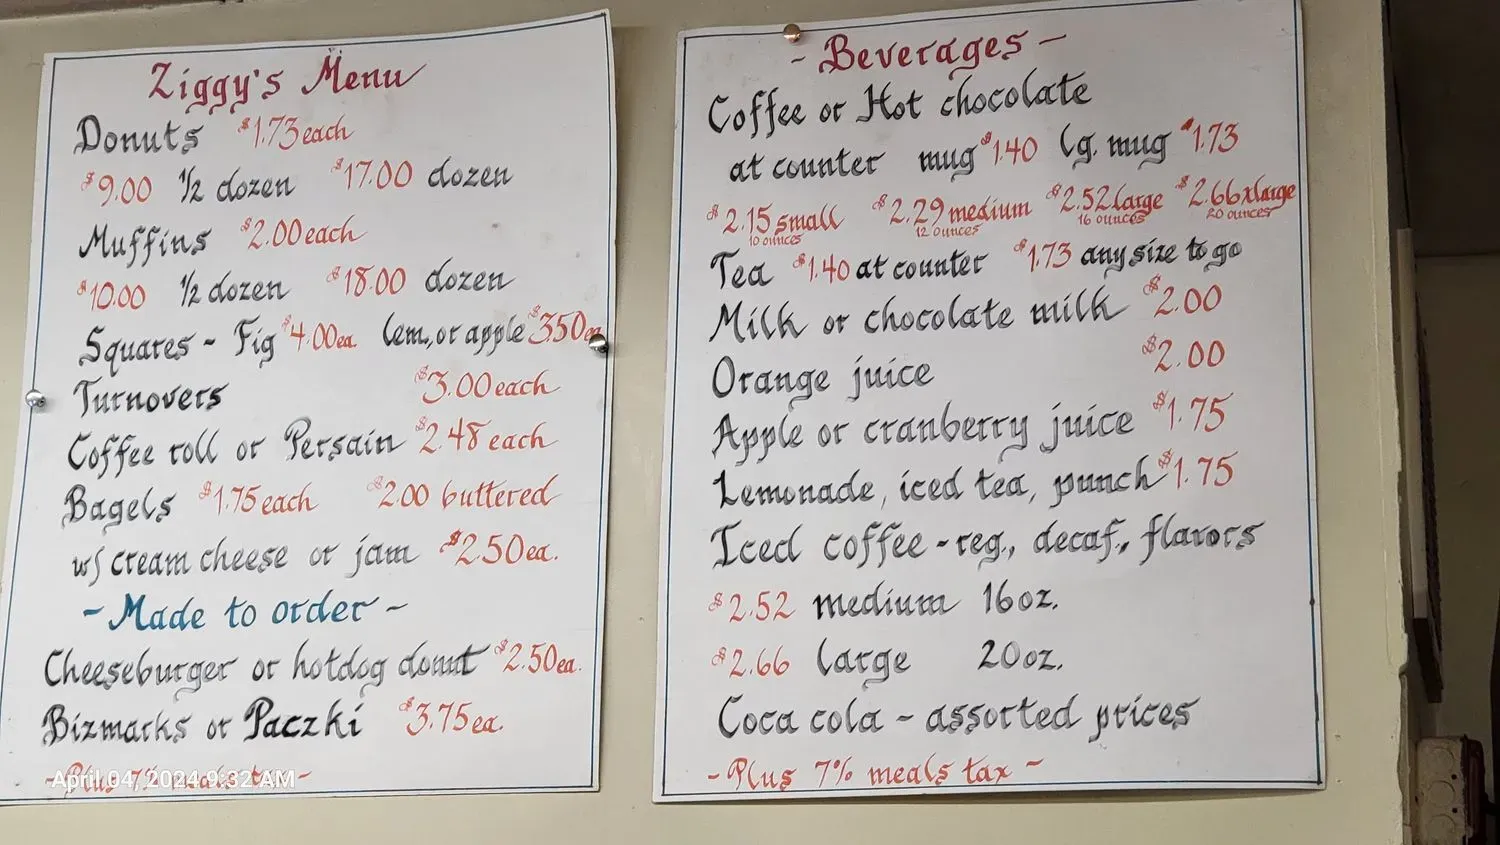 Ziggy's Menu
Donuts $1.73 each
$9.00 1/2 dozen $17.00 dozen
Muffins $2.00 each
$10.00 1/2 dozen $18.00 dozen
Squares - Fig $4.00ea. lem., or apple $350ea
Turnovers $3.00 each
Coffee roll or Persain $2.48 each
Bagels $1.75 each $2.00 buttered
w/ cream cheese or jam $2.50ea.
- Made to order -
Cheeseburger or hotdog donut $2.50ea.
Bizmarks or Paczki $3.75ea.
- Plus 7% meals tax -
April 04, 2024 9:32 AM
- Beverages -
Coffee or Hot chocolate
at counter mug $1.40 lg. mug $1.73
$2.15 small $2.29 medium $2.52 large $2.66 xlarge
10 ounces 12 ounces 16 ounces 20 ounces
Tea $1.40 at counter $1.73 any size to go
Milk or chocolate milk $2.00
Orange juice $2.00
Apple or cranberry juice $1.75
Lemonade, iced tea, punch $1.75
Iced coffee - reg., decaf., flavors
$2.52 medium 16oz.
$2.66 large 20oz.
Coca cola - assorted prices
- Plus 7% meals tax -